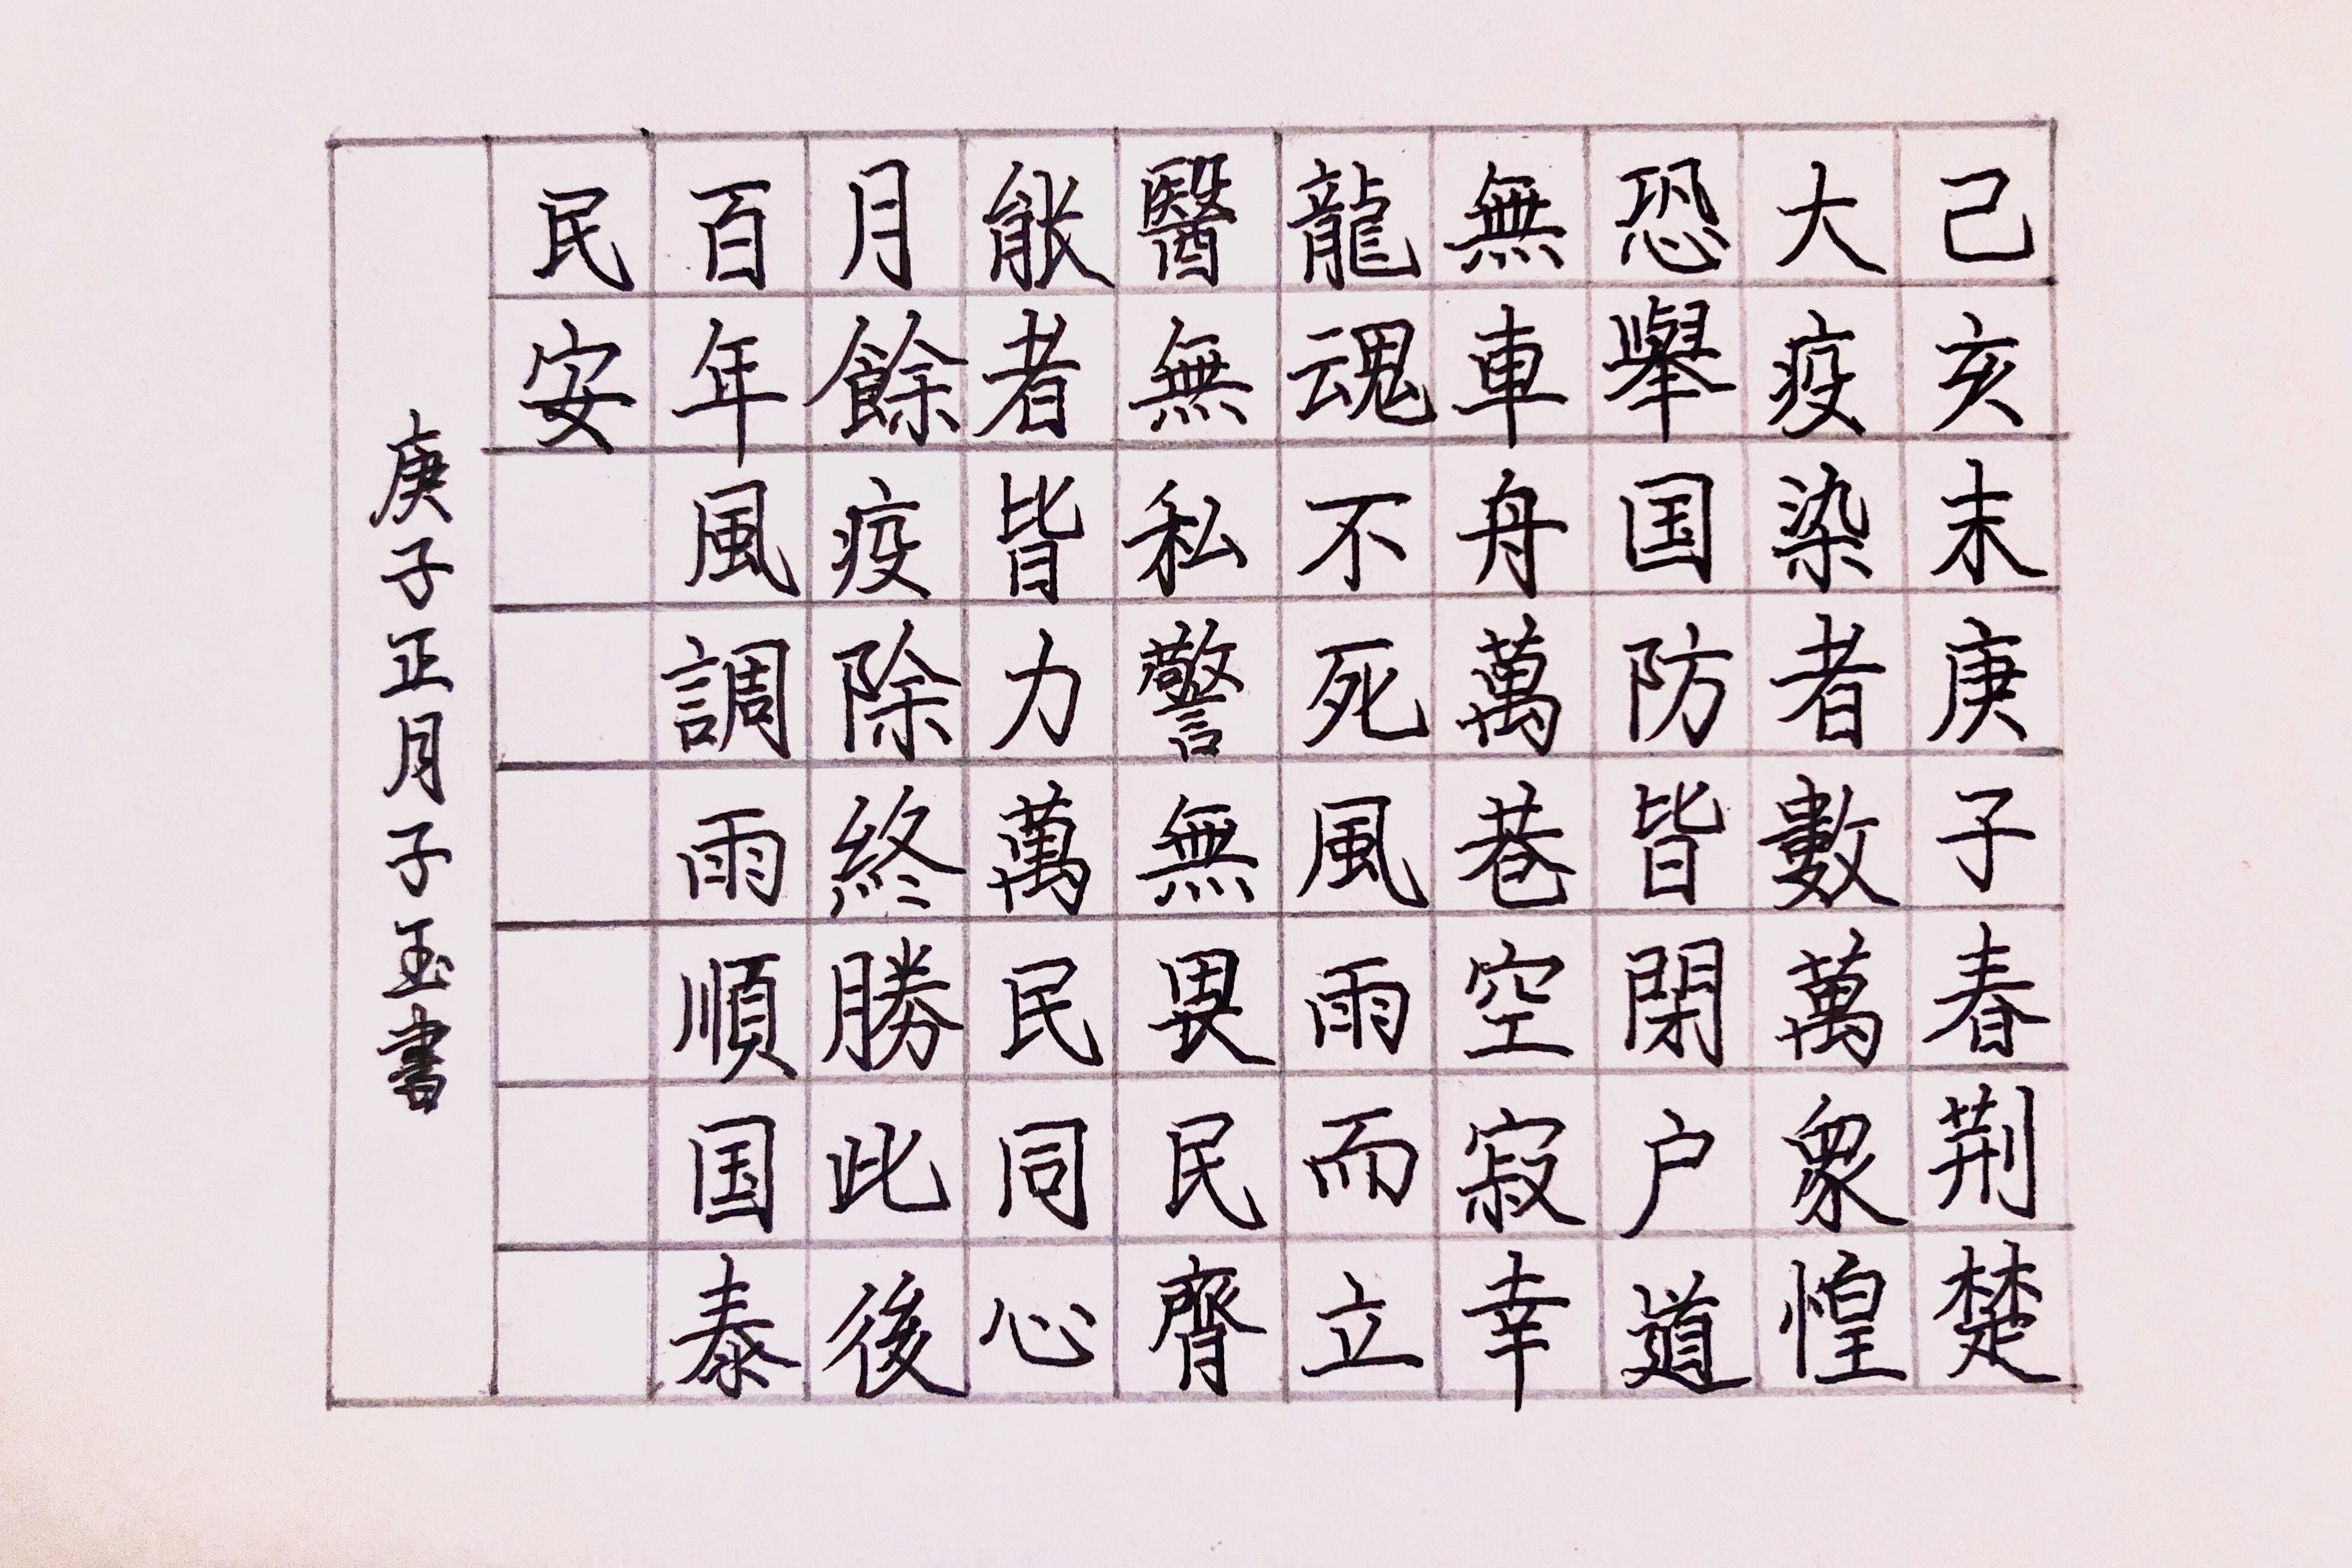 己亥末庚子春荆楚
大疫染者數萬眾惶
恐舉国防皆閉户道
無車舟萬巷空寂幸
龍魂不死風雨而立
醫無私警無畏民齊
能者皆力萬民同心
月餘疫除終勝此後
百年風調雨順国泰
民安
庚子正月子玉書